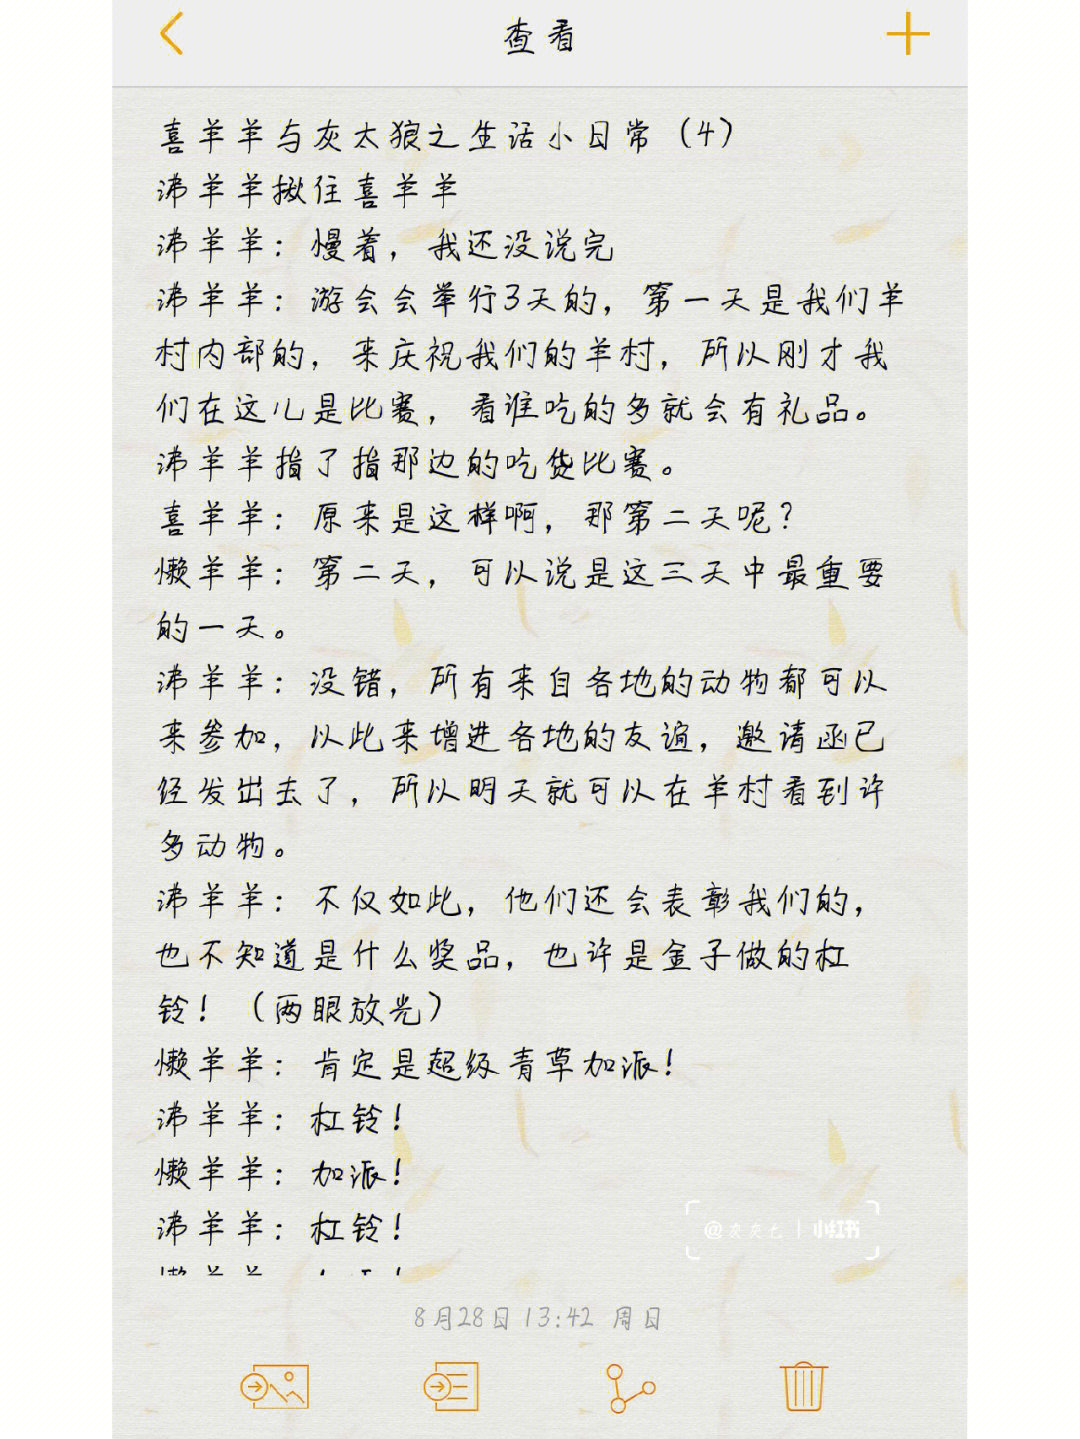 查看
喜羊羊与灰太狼之生活小日常（4）
沸羊羊揪住喜羊羊
沸羊羊：慢着，我还没说完
沸羊羊：游会会举行3天的，第一天是我们羊
村内部的，来庆祝我们的羊村，所以刚才我
们在这儿是比赛，看谁吃的多就会有礼品。
沸羊羊指了指那边的吃货比赛。
喜羊羊：原来是这样啊，那第二天呢？
懒羊羊：第二天，可以说是这三天中最重要
的一天。
沸羊羊：没错，所有来自各地的动物都可以
来参加，以此来增进各地的友谊，邀请函已
经发出去了，所以明天就可以在羊村看到许
多动物。
沸羊羊：不仅如此，他们还会表彰我们的，
也不知道是什么奖品，也许是金子做的杠
铃！（两眼放光）
懒羊羊：肯定是超级青草加派！
沸羊羊：杠铃！
懒羊羊：加派！
沸羊羊：杠铃！
@灰灰七 小红书
8月28日 13:42 周日